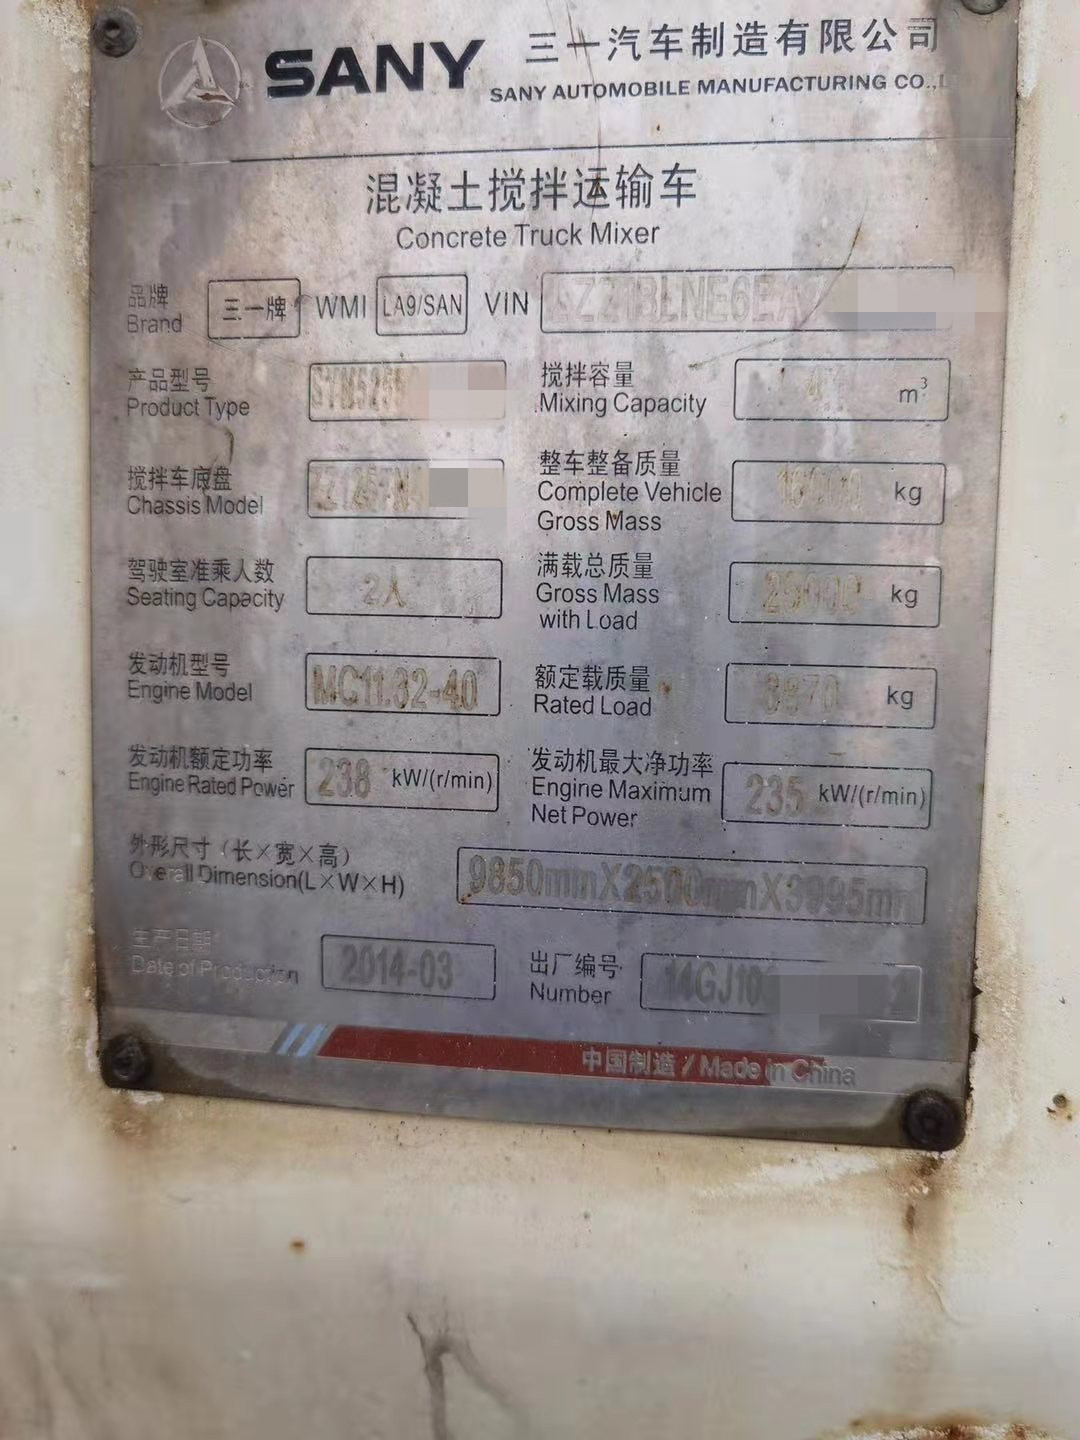 SANY 三一汽车制造有限公司
SANY AUTOMOBILE MANUFACTURING CO.,L
混凝土搅拌运输车
Concrete Truck Mixer
品牌 三一牌 WMI LA9/SAN VIN
Brand
产品型号
Product Type
搅拌容量 m³
Mixing Capacity
搅拌车底盘
Chassis Model
整车整备质量 kg
Complete Vehicle
Gross Mass
驾驶室准乘人数 2人
Seating Capacity
满载总质量 25000 kg
Gross Mass
with Load
发动机型号 MC11.32-40
Engine Model
额定载质量 kg
Rated Load
发动机额定功率 238 kW/(r/min)
Engine Rated Power
发动机最大净功率 235 kW/(r/min)
Engine Maximum
Net Power
外形尺寸（长×宽×高）
Overall Dimension(L×W×H) 9850mmX2500mmX3995mm
生产日期 2014-03
Date of Production
出厂编号 14GJ10
Number
中国制造 / Made in China